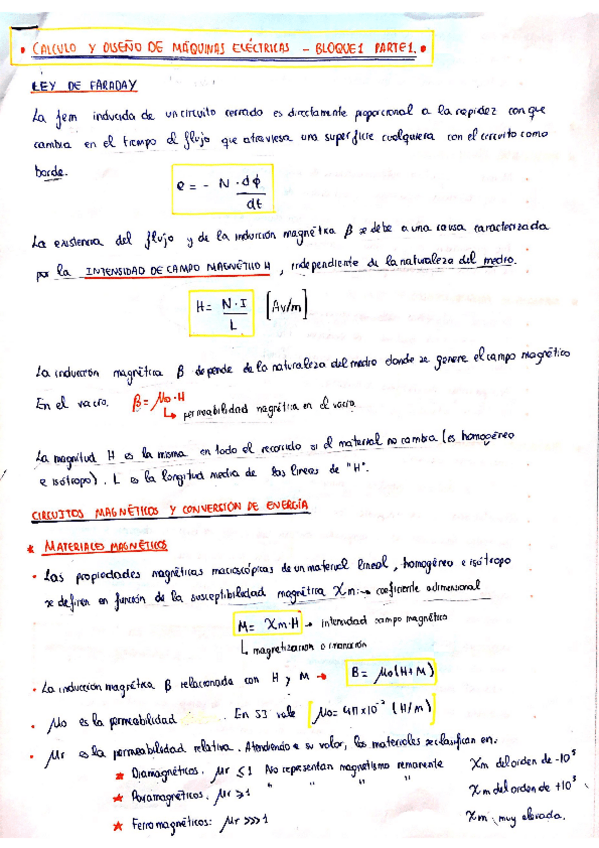 • CALCULO Y DISEÑO DE MÁQUINAS ELÉCTRICAS – BLOQUE 1 PARTE 1. •
LEY DE FARADAY
La fem inducida de un circuito cerrado es directamente proporcional a la rapidez con que
cambia en el tiempo el flujo que atraviesa una superficie cualquiera con el circuito como
borde.
e = - N · dϕ / dt
La existencia del flujo y de la inducción magnética β se debe a una causa caracterizada
por la INTENSIDAD DE CAMPO MAGNÉTICO H, independiente de la naturaleza del medio.
H = N · I / L [Av/m]
La inducción magnética β depende de la naturaleza del medio donde se genere el campo magnético
En el vacío. β = μo · H
↳ permeabilidad magnética en el vacío
La magnitud H es la misma en todo el recorrido si el material no cambia (es homogéneo
e isótropo). L es la longitud media de las líneas de "H".
CIRCUITOS MAGNÉTICOS Y CONVERSIÓN DE ENERGÍA
* MATERIALES MAGNÉTICOS
• Las propiedades magnéticas macroscópicas de un material lineal, homogéneo e isótropo
se definen en función de la susceptibilidad magnética Xm: → coeficiente adimensional
M = Xm · H → intensidad campo magnético
↳ magnetización o imanación
• La inducción magnética β relacionada con H y M → B = μo (H + M)
• μo es la permeabilidad En SI vale μo = 4π x 10⁻⁷ (H/m)
• μr es la permeabilidad relativa. Atendiendo a su valor, los materiales se clasifican en:
* Diamagnéticos. μr ≤ 1 No representan magnetismo remanente Xm del orden de -10⁵
* Paramagnéticos. μr ≥ 1 " " " " Xm del orden de +10³
* Ferromagnéticos: μr >>> 1 Xm muy elevada.